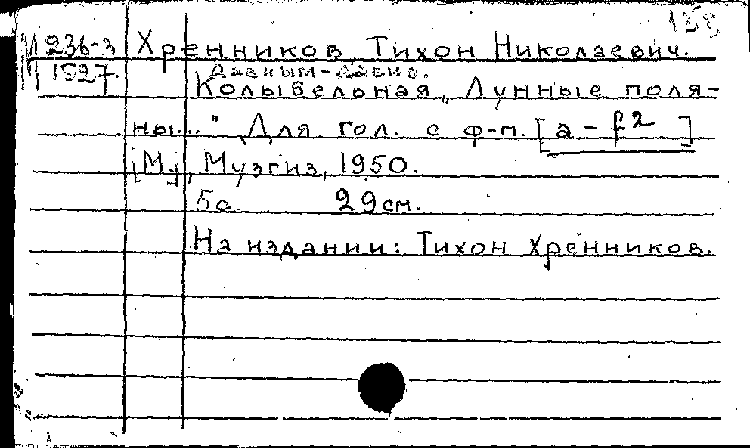 158
М 236-3 Хренников, Тихон Николаевич.
М 1527. Давным-давно.
Колыбельная „Лунные поля-
ны..." Для гол. с ф-п. [a - f2]
[М], Музгиз, 1950.
5с 29см.
На издании: Тихон Хренников.